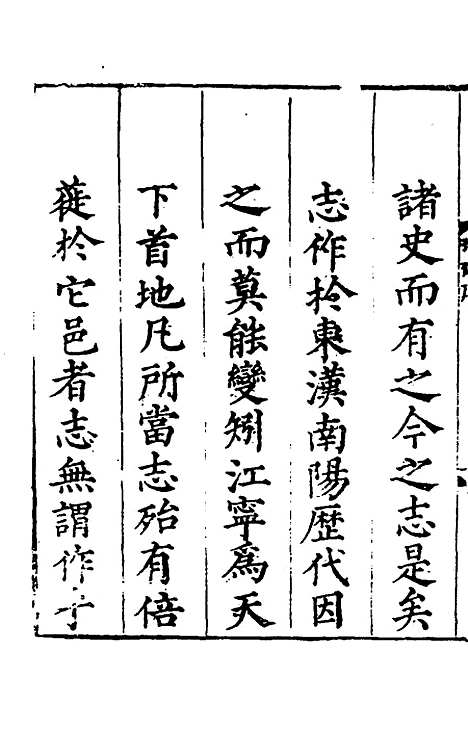 諸史而有之今之志是矣
志作於東漢南陽歷代因
之而莫能變矧江寧爲天
下首地凡所當志殆有倍
蓰於它邑者志無謂作于